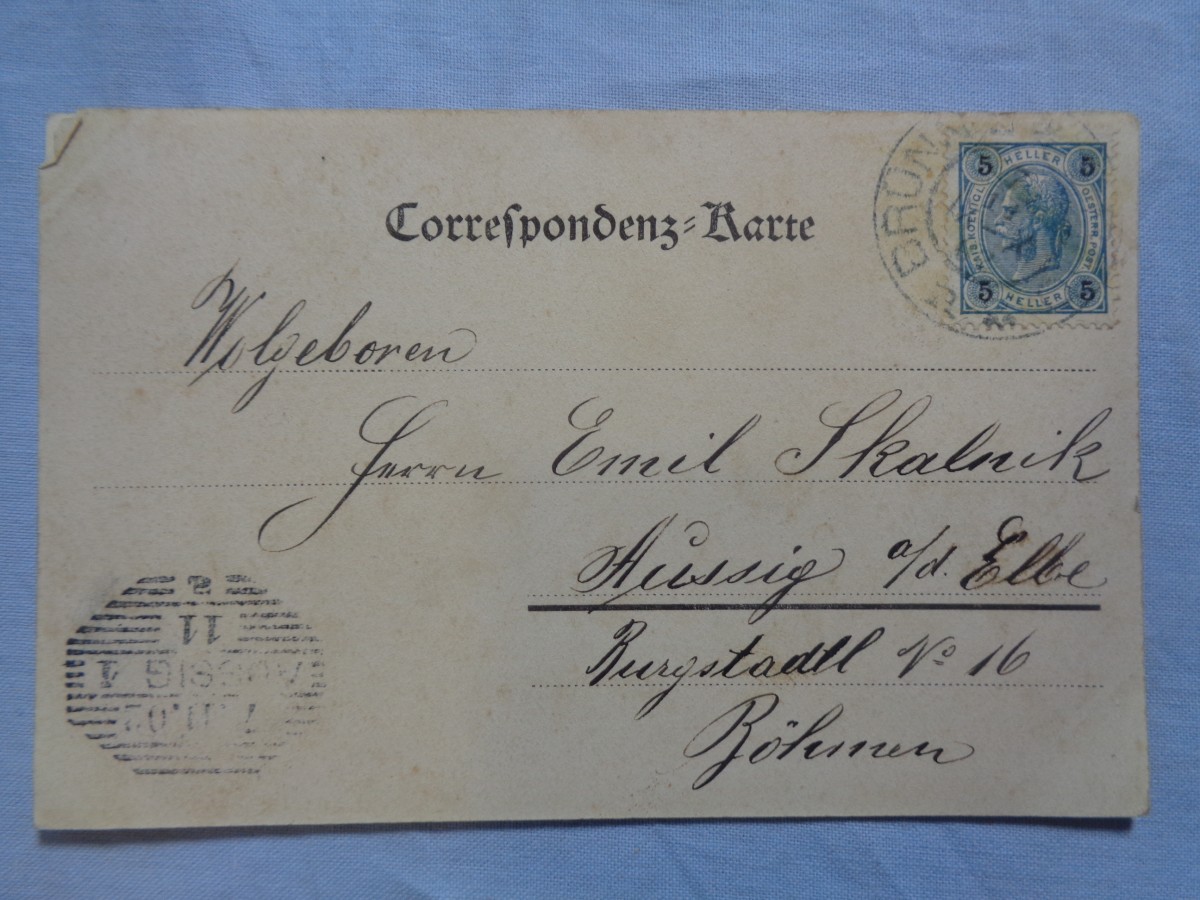 Correspondenz-Karte
BRÜNN
5 HELLER 5
KAIS. KOENIGL.
OESTERR. POST.
5 HELLER 5
Wolgeboren
Herrn Emil Skalnik
Aussig a/d. Elbe
Burgstadtl No 16
Böhmen
11
AUSSIG 1